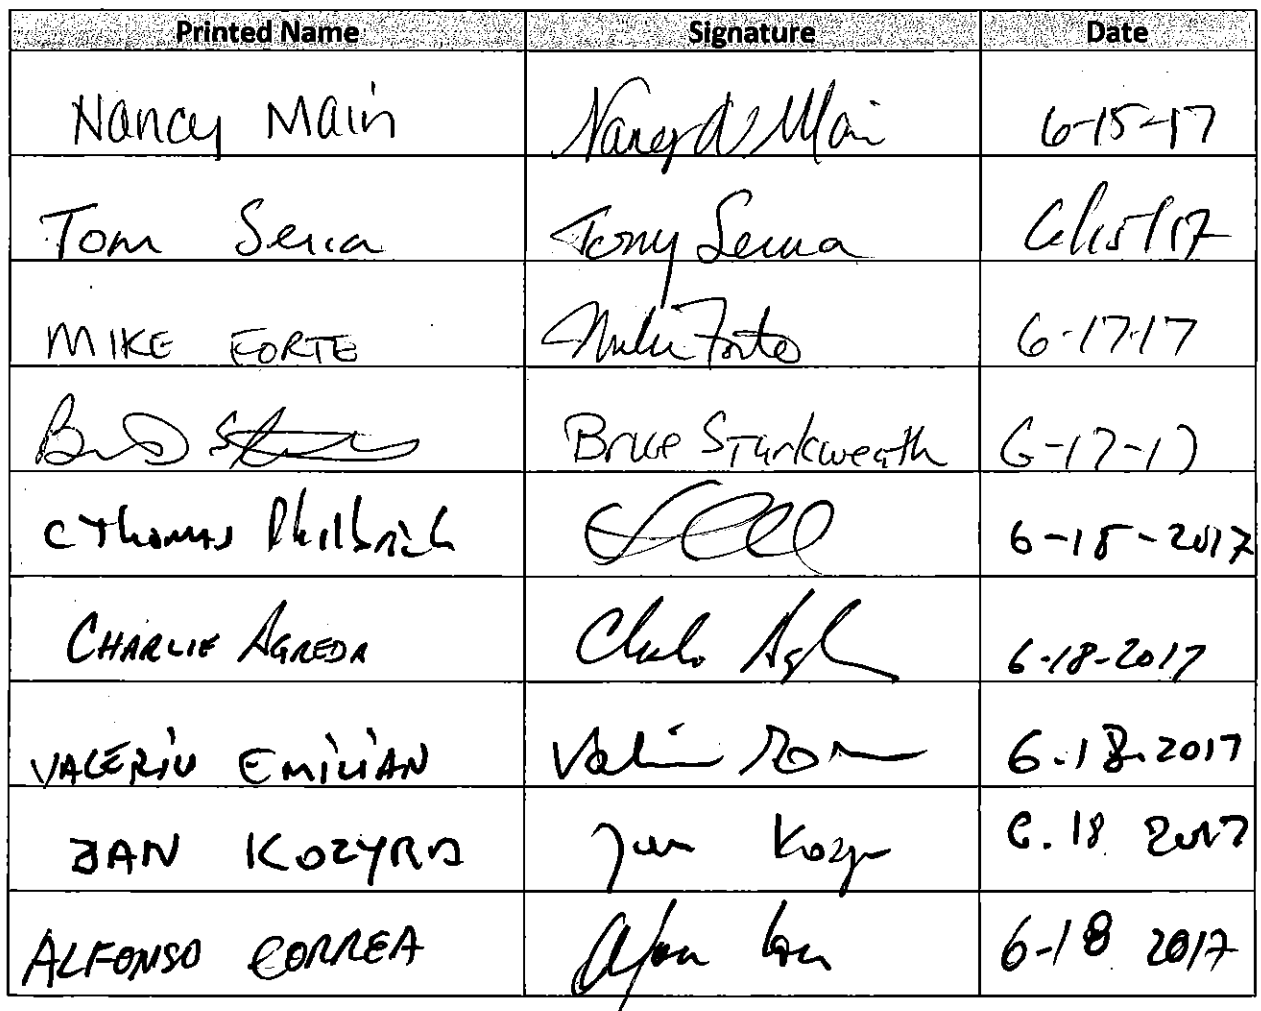 Printed Name Signature Date
Nancy Main Nancy Main 6-15-17
Tom Serra Tony Serra 6/15/17
MIKE FORTE Mike Forte 6-17-17
Bruce Starkweath 6-17-17
C Thomas Philbrick 6-18-2017
CHARLIE AGREDA 6-18-2017
VALERIU EMILIAN 6.18.2017
JAN KOZYRA Jan Kozyra 6.18 2017
ALFONSO CORREA 6-18 2017